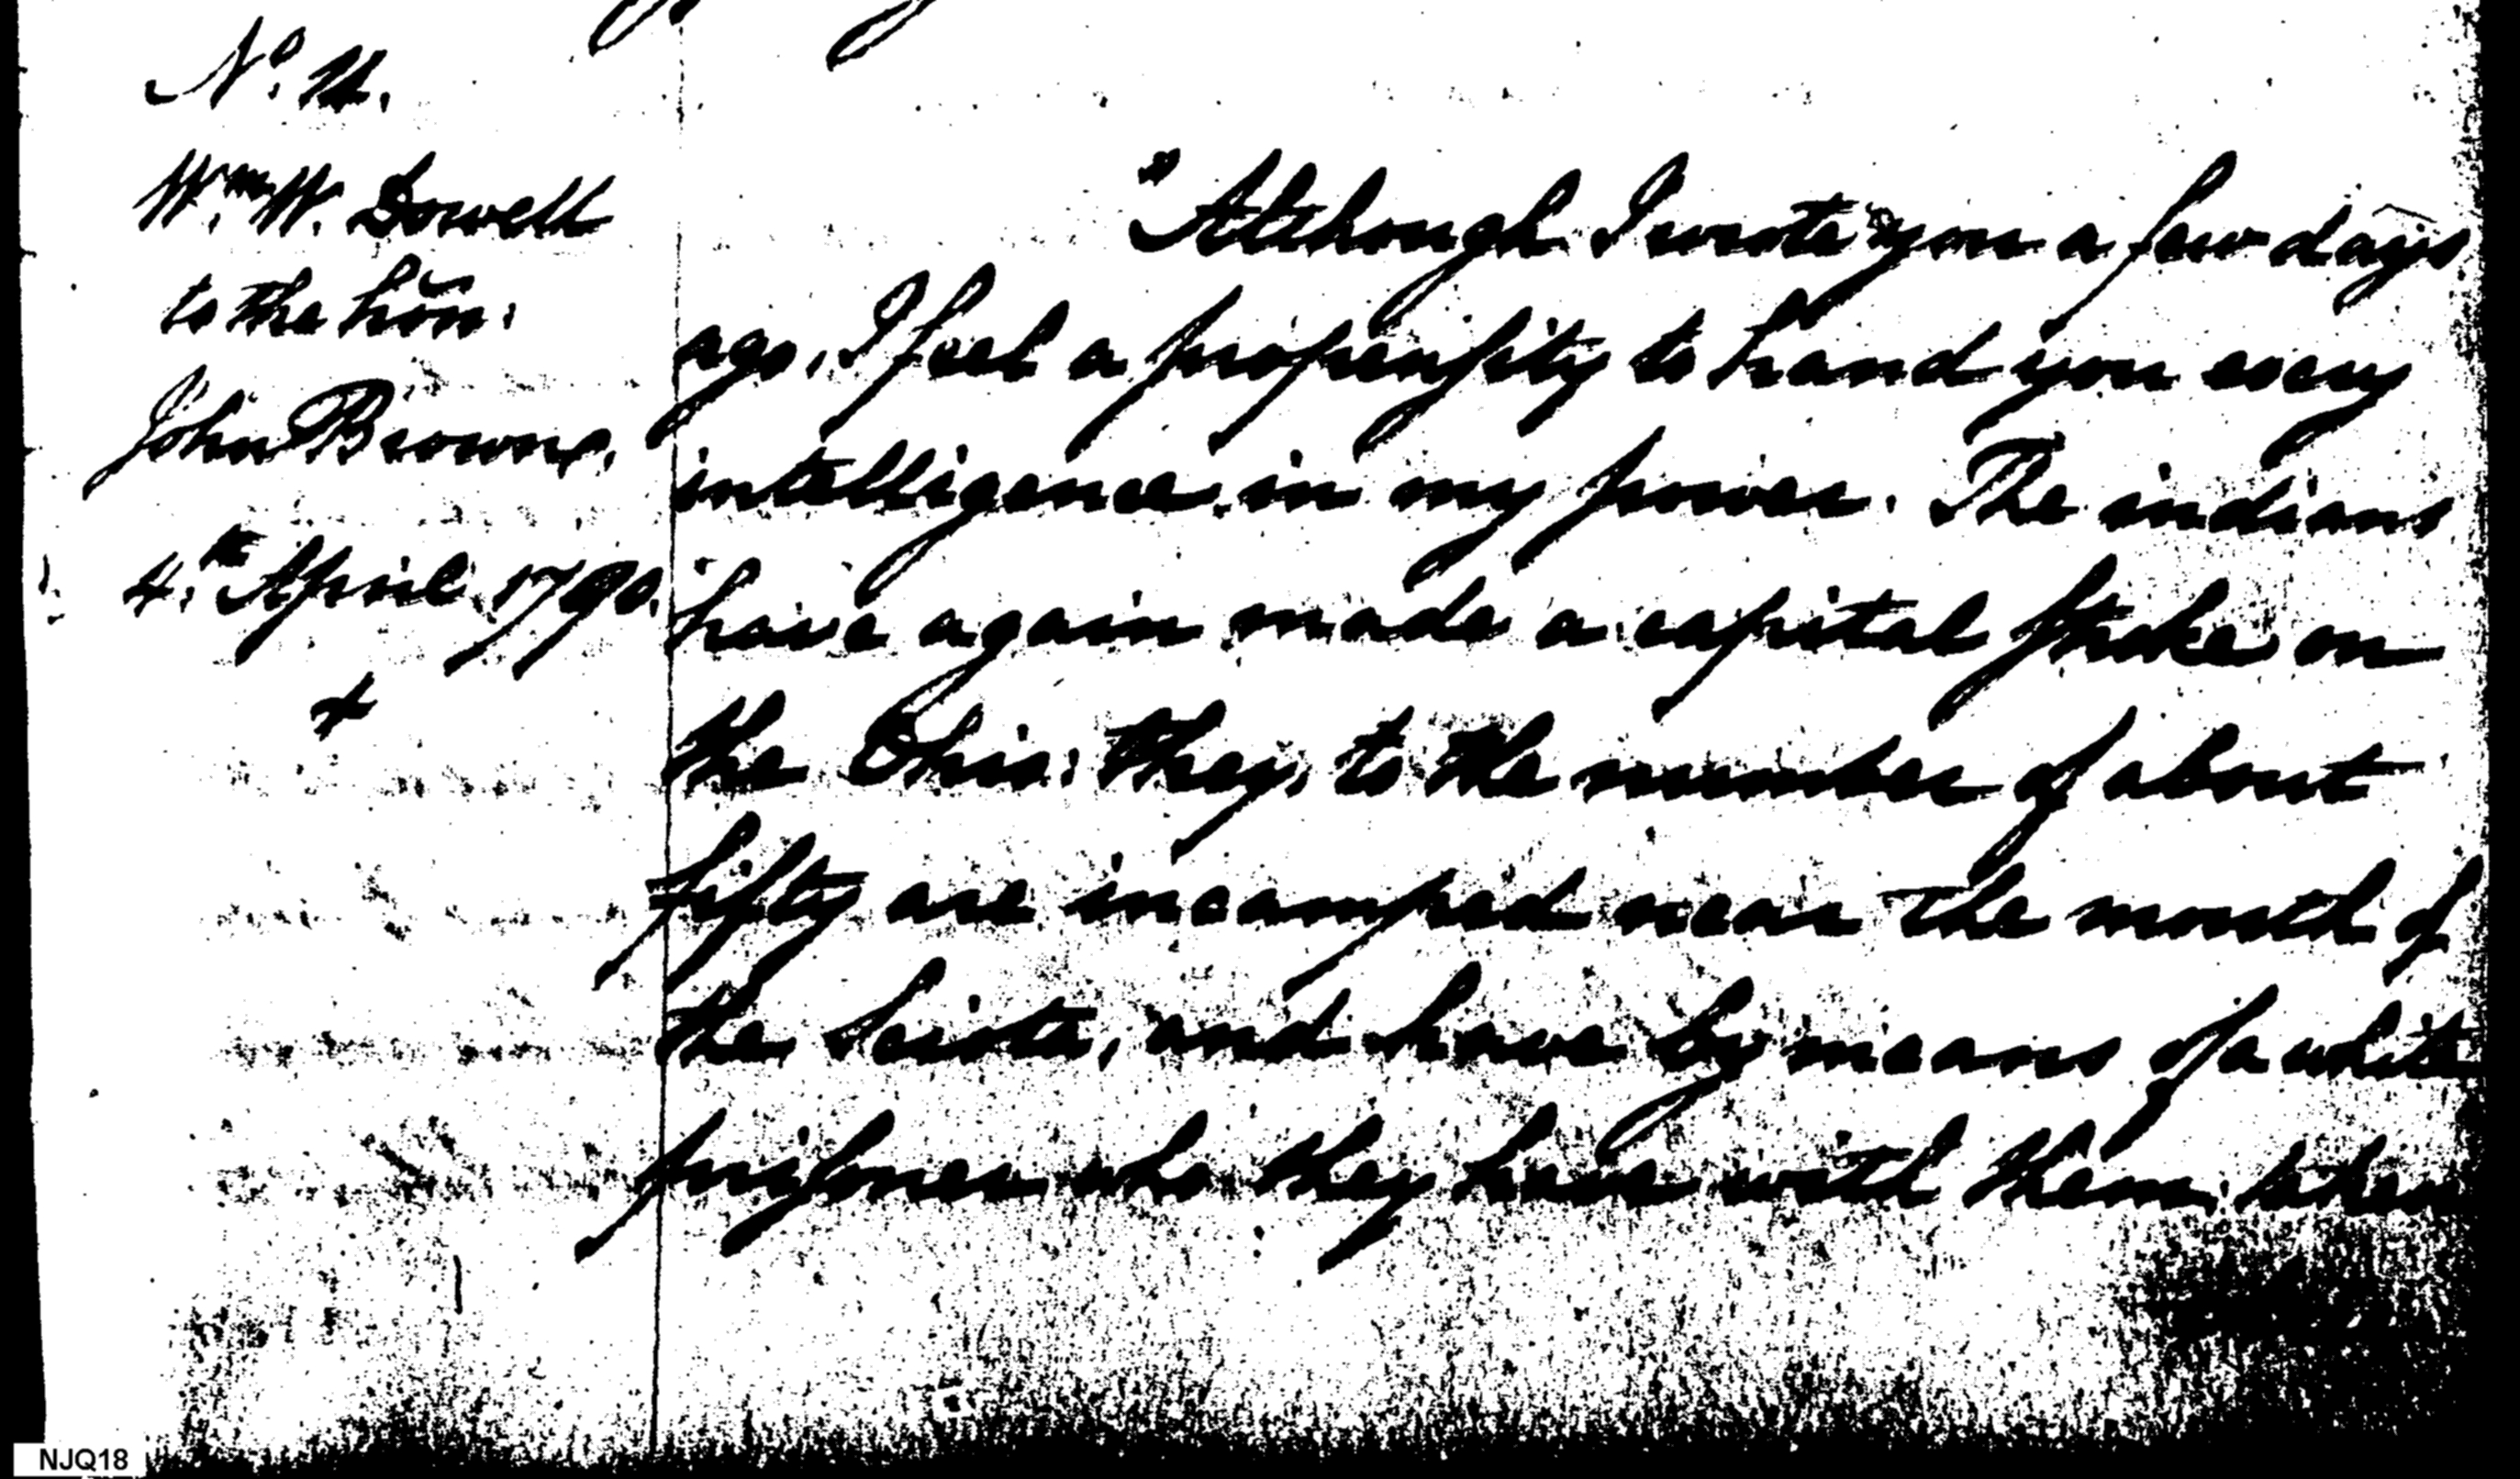 No. 11.
Wm. W. Dowell
to the hon:
John Browne,
4.th April, 1790.
"Although I wrote you a few days
ago, I feel a propensity to hand you every
intelligence in my power. The indians
have again made a capital stroke on
the Ohio: they, to the number of about
fifty are incamped near the mouth of
the Sciota, and have by means of a white
prisoner who they have with them, taken
NJQ18